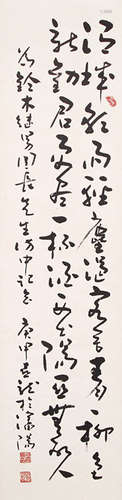 渭城朝雨浥輕塵客舍青々柳色
新勸君更盡一杯酒西出陽關無故人
為鈴木继男團長先生访中記念 庚申 於瀋陽